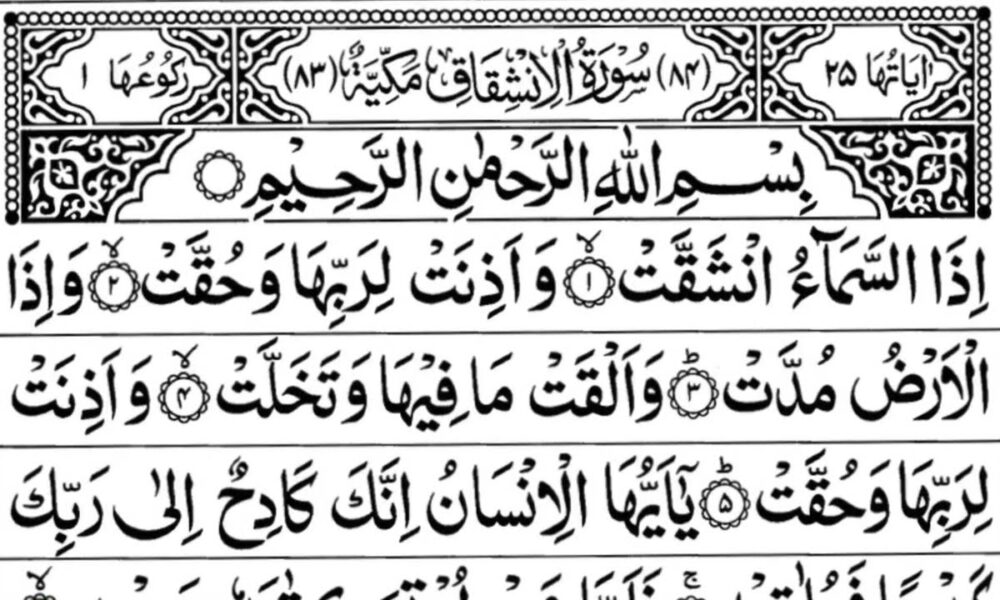 اٰيَاتُهَا ٢٥ (٨٤) سُوْرَةُ الْاِنْشِقَاقِ مَكِّيَّةٌ (٨٣) رُكُوْعُهَا ١
بِسْمِ اللّٰهِ الرَّحْمٰنِ الرَّحِيْمِ
اِذَا السَّمَآءُ انْشَقَّتْ ۙ﴿١﴾ وَ اَذِنَتْ لِرَبِّهَا وَ حُقَّتْ ۙ﴿٢﴾ وَ اِذَا
الْاَرْضُ مُدَّتْ ؕ﴿٣﴾ وَ اَلْقَتْ مَا فِيْهَا وَ تَخَلَّتْ ۙ﴿٤﴾ وَ اَذِنَتْ
لِرَبِّهَا وَ حُقَّتْ ؕ﴿٥﴾ يٰۤاَيُّهَا الْاِنْسَانُ اِنَّكَ كَادِحٌ اِلٰى رَبِّكَ